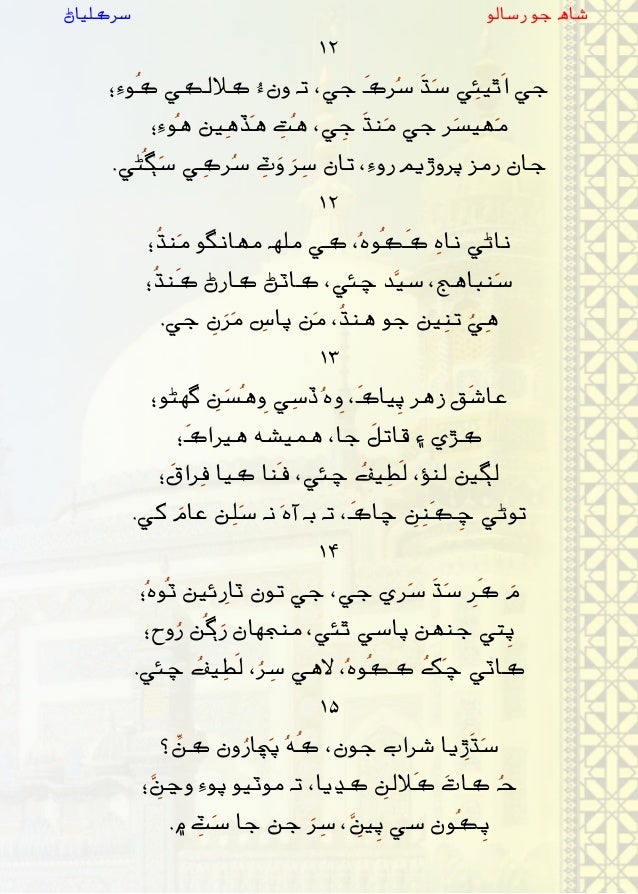 شاھ جو رسالو
سر ڪلياڻ
۱۲
جي اَٿيئِي سَڌَ سُرڪَ جي، تہ ونءُ ڪلالڪي ڪُوءِ؛
مَهيسَر جي مَنڌَ جِي، هُتِ هَڏَهِين هُوءِ؛
جان رمز پروڙيم روءِ، تان سِرَ وَٽِ سُرڪِي سَڳُڻي.
۱۲
ناڻي ناهِ ڪَڪُوهُ، ڪي ملهہ مهانگو مَنڌُ؛
سَنباهج، سيَّد چئي، ڪاٽڻ ڪارڻ ڪَنڌُ؛
هِيُ تنِين جو هنڌُ، مَن پاسِ مَرَنِ جي.
۱۳
عاشَق زهر پِياڪَ، وِهُ ڏسِي وِهُسَنِ گهڻو؛
ڪڙي ۽ قاتلَ جا، هميشہ هيراڪَ؛
لڳين لنؤ، لَطِيفُ چئي، فَنا ڪيا فِراقَ؛
توڻي چِڪَنِنِ چاڪَ، تہ بہ آهَ نہ سَلِن عامَ کي.
۱۴
مَ ڪَرِ سَڌَ سَري جي، جي تون ٽارِئين ٽُوهُ؛
پِتي جنهن پاسي ٿئي، منجهان رَڳُن رُوح؛
ڪاٽي چَکُ ڪڪُوهُ، لاهي سِرُ، لَطِيفُ چئي.
۱۵
سَڌَڙِيا شراب جون، ڪُهُ پَچارُون ڪنِّ؟
جُہ ڪاتَ ڪَلالنِ ڪڍيا، تہ موٽيو پوءِ وڃنِّ؛
پِڪُون سي پِينِّ، سِرَ جن جا سَٽِ ۾.